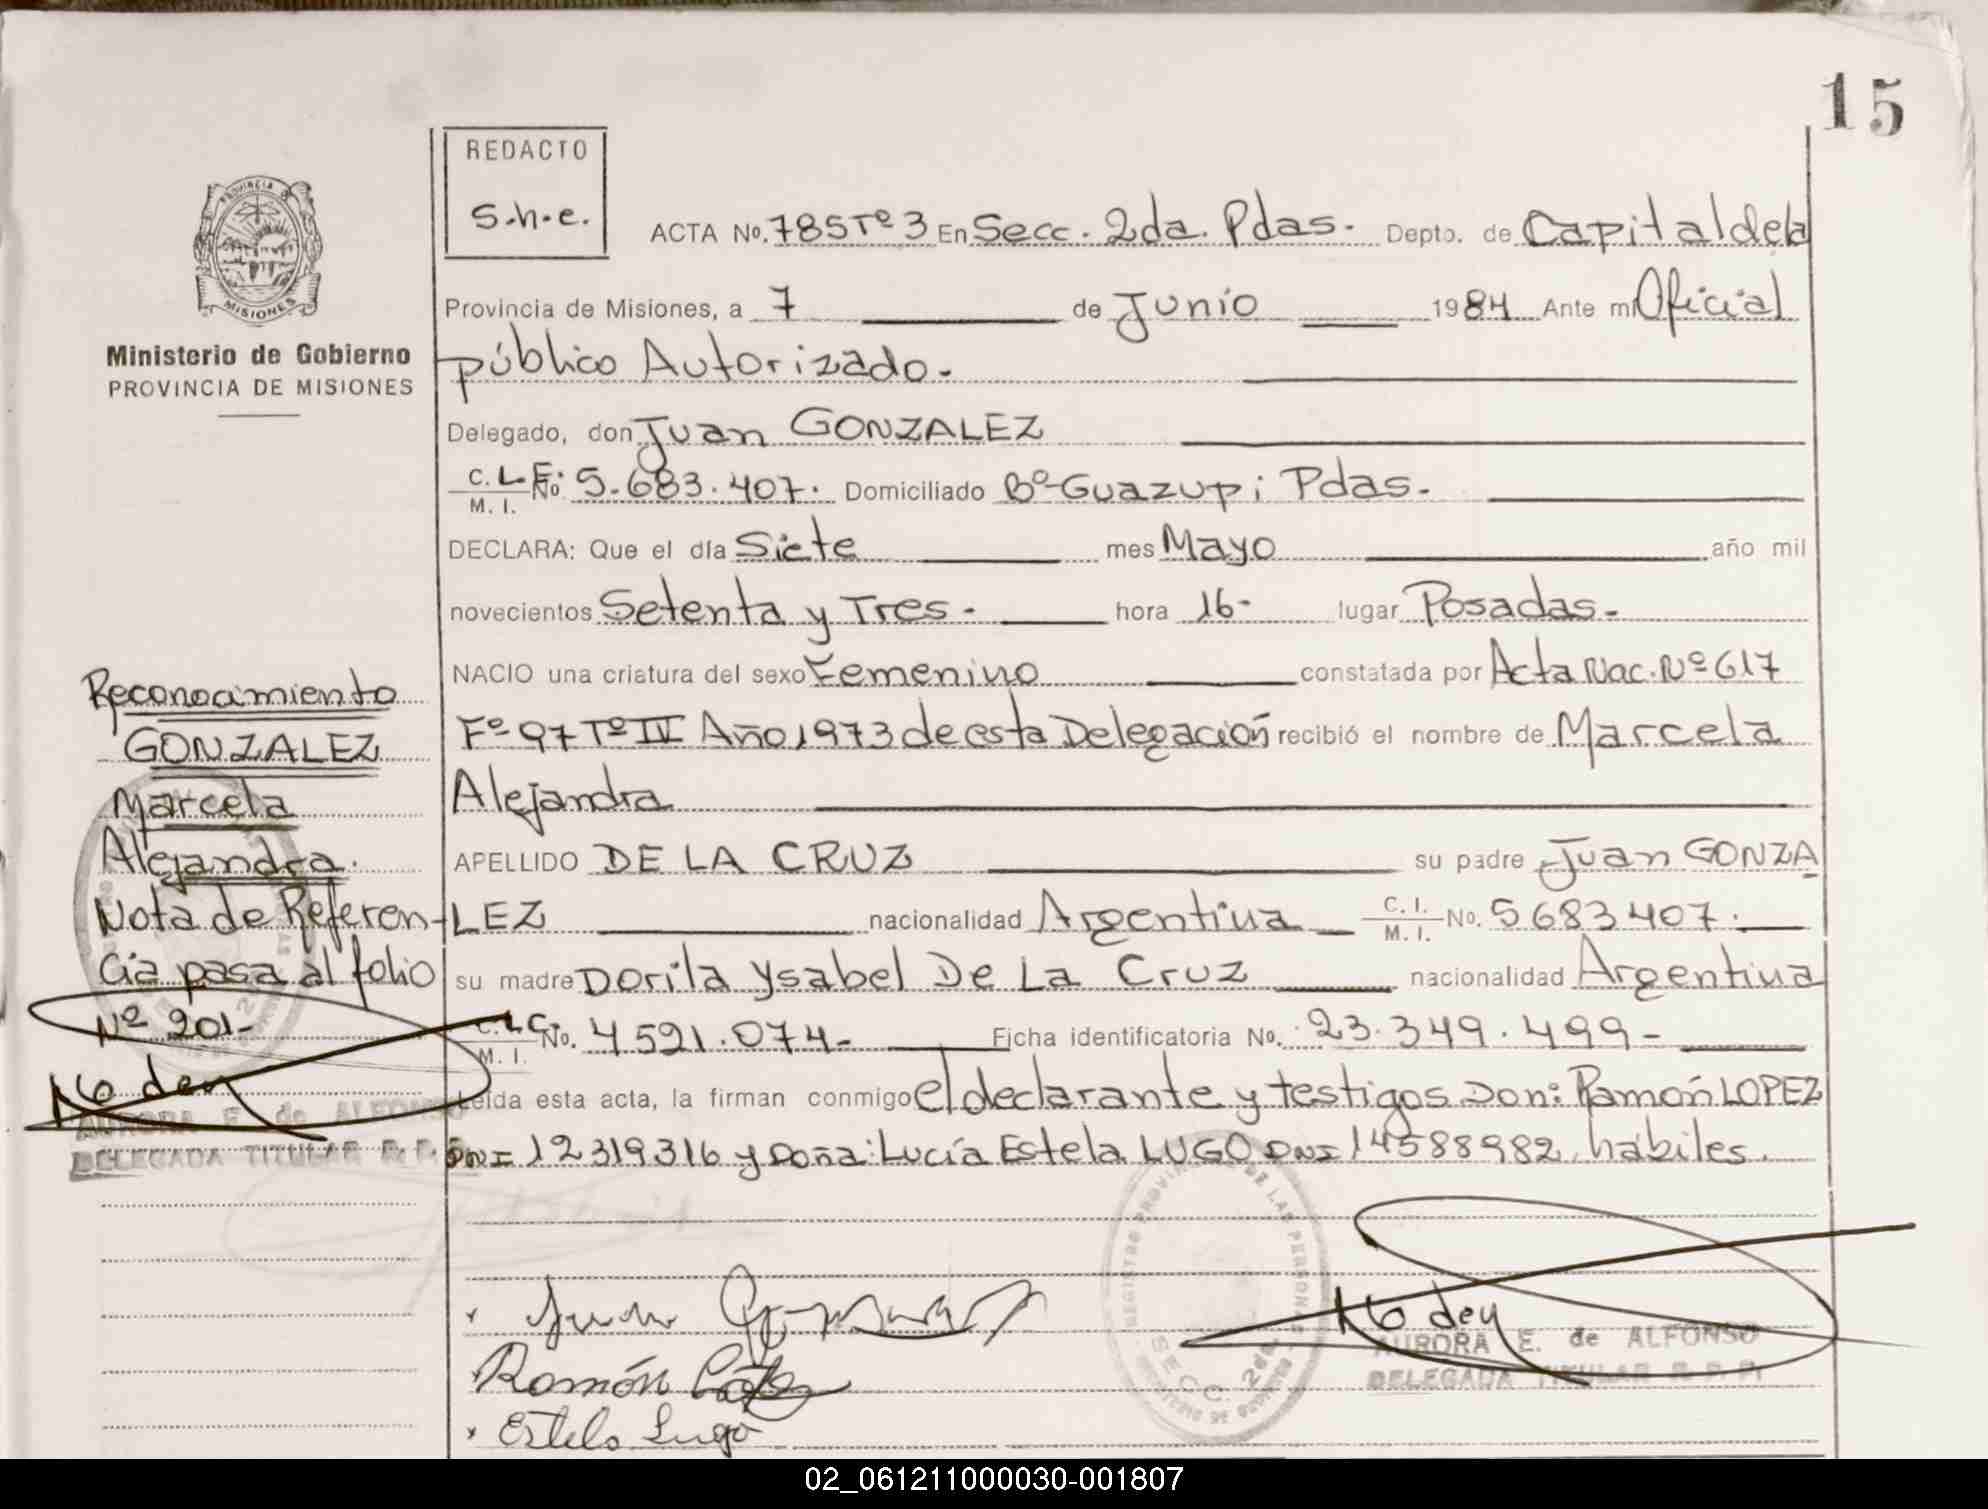 15
REDACTO
S.h.e.
PROVINCIA D
MISIONES
Ministerio de Gobierno
PROVINCIA DE MISIONES
ACTA No. 785 Tº 3 En Secc. 2da. Pdas. Depto. de Capital de la
Provincia de Misiones, a 7 de Junio 1984 Ante mi Oficial
público Autorizado.
Delegado, don Juan GONZALEZ
C. L.E. No. 5.683.407. Domiciliado Bº Guazupi Pdas.
M. I.
DECLARA: Que el día Siete mes Mayo año mil
novecientos Setenta y Tres. hora 16- lugar Posadas.
NACIO una criatura del sexo Femenino constatada por Acta Nac. Nº 617
Fº 97 Tº IV Año 1973 de esta Delegación recibió el nombre de Marcela
Alejandra
APELLIDO DE LA CRUZ su padre Juan GONZA
LEZ nacionalidad Argentina C. I. M. I. No. 5.683.407.
su madre Dorila Ysabel De La Cruz nacionalidad Argentina
C. L.C. M. I. No. 4.591.074- Ficha identificatoria No. 23.349.499-
Leída esta acta, la firman conmigo el declarante y testigos Don: Ramón LOPEZ
DNI 12319316 y Doña: Lucía Estela LUGO DNI 14588982, hábiles.
Reconocimiento
GONZALEZ
Marcela
Alejandra.
Nota de Referen-
cia pasa al folio
Nº 201-
AURORA E. de ALFONSO
DELEGADA TITULAR R. P.
Juan Gonzalez
Ramón López
Estela Lugo
REGISTRO PROVINCIAL DE LAS PERSONAS
SECC. 2da
AURORA E. de ALFONSO
DELEGADA TITULAR R. P. P.
02_061211000030-001807